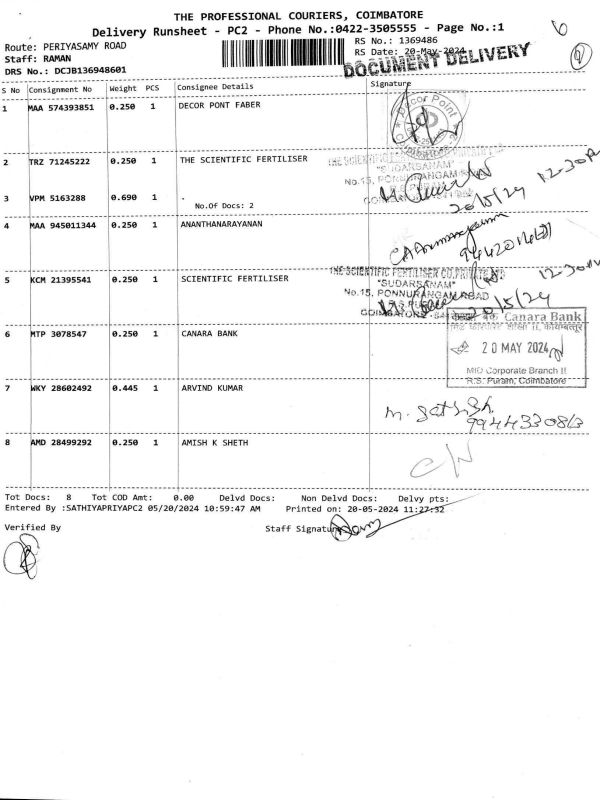 THE PROFESSIONAL COURIERS, COIMBATORE
Delivery Runsheet - PC2 - Phone No.:0422-3505555 - Page No.:1
6
Route: PERIYASAMY ROAD
RS No.: 1369486
Staff: RAMAN
RS Date: 20-May-2024
DOCUMENT DELIVERY
DRS No.: DCJB136948601
S No Consignment No Weight PCS Consignee Details Signature
1 MAA 574393851 0.250 1 DECOR PONT FABER
Decor Point
2 TRZ 71245222 0.250 1 THE SCIENTIFIC FERTILISER
"SUDARSANAM"
No.15, PONNURANGAM
12-30
20/5/24
3 VPM 5163288 0.690 1 .
No.Of Docs: 2
4 MAA 945011344 0.250 1 ANANTHANARAYANAN
5 KCM 21395541 0.250 1 SCIENTIFIC FERTILISER
THE SCIENTIFIC FERTILISER CO.PRIVATE LTD
"SUDARSANAM"
No.15, PONNURANGAM ROAD
R.S. PURAM
COIMBATORE
12-30
20/5/24
6 MTP 3078547 0.250 1 CANARA BANK
Canara Bank
20 MAY 2024
MID Corporate Branch II
R.S. Puram, Coimbatore
7 WKY 28602492 0.445 1 ARVIND KUMAR
M. Sathish
9944330863
8 AMD 28499292 0.250 1 AMISH K SHETH
Tot Docs: 8 Tot COD Amt: 0.00 Delvd Docs: Non Delvd Docs: Delvy pts:
Entered By :SATHIYAPRIYAPC2 05/20/2024 10:59:47 AM Printed on: 20-05-2024 11:27:32
Verified By
Staff Signature